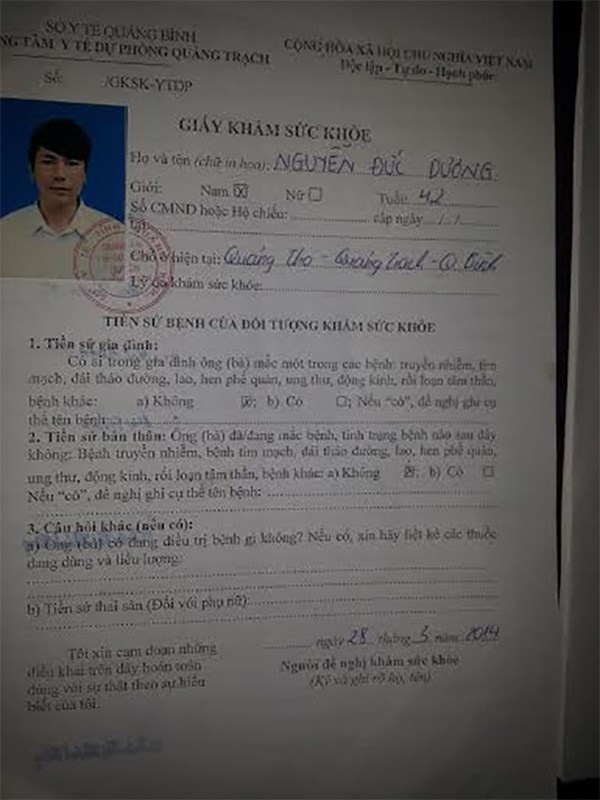 SỞ Y TẾ QUẢNG BÌNH
NG TÂM Y TẾ DỰ PHÒNG QUẢNG TRẠCH
Số: /GKSK-YTDP
CỘNG HÒA XÃ HỘI CHỦ NGHĨA VIỆT NAM
Độc lập - Tự do - Hạnh phúc
GIẤY KHÁM SỨC KHỎE
Họ và tên (chữ in hoa): NGUYỄN ĐỨC DƯƠNG
Giới: Nam ☒ Nữ ☐ Tuổi: 42
Số CMND hoặc Hộ chiếu: .................. cấp ngày ..../..../....
tại
Chỗ ở hiện tại: Quảng Thọ - Quảng Trạch - Q. Bình
Lý do khám sức khỏe:
TIỀN SỬ BỆNH CỦA ĐỐI TƯỢNG KHÁM SỨC KHỎE
1. Tiền sử gia đình:
Có ai trong gia đình ông (bà) mắc một trong các bệnh: truyền nhiễm, tim
mạch, đái tháo đường, lao, hen phế quản, ung thư, động kinh, rối loạn tâm thần,
bệnh khác: a) Không ☒; b) Có ☐; Nếu “có”, đề nghị ghi cụ
thể tên bệnh:
2. Tiền sử bản thân: Ông (bà) đã/đang mắc bệnh, tình trạng bệnh nào sau đây
không: Bệnh truyền nhiễm, bệnh tim mạch, đái tháo đường, lao, hen phế quản,
ung thư, động kinh, rối loạn tâm thần, bệnh khác: a) Không ☒; b) Có ☐
Nếu “có”, đề nghị ghi cụ thể tên bệnh:
3. Câu hỏi khác (nếu có):
a) Ông (bà) có đang điều trị bệnh gì không? Nếu có, xin hãy liệt kê các thuốc
đang dùng và liều lượng:
b) Tiền sử thai sản (Đối với phụ nữ):
Tôi xin cam đoan những
điều khai trên đây hoàn toàn
đúng với sự thật theo sự hiểu
biết của tôi.
........, ngày 28 tháng 5 năm 2014
Người đề nghị khám sức khỏe
(Ký và ghi rõ họ, tên)